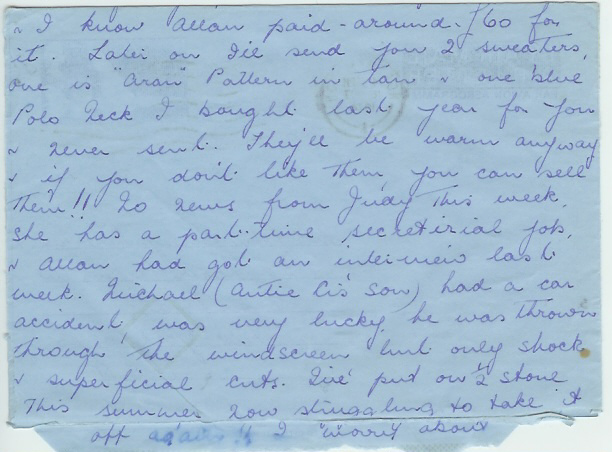 & I know Allan paid - around £60 for
it. Later on I'll send you 2 sweaters,
one is "Aran" Pattern in tan & one blue
Polo Neck I bought last year for you
& never sent. They'll be warm anyway
& if you don't like them, you can sell
them!! No news from Judy this week,
she has a part-time secretirial job,
& Allan had got an interview last
week. Michael (Antie Cis' son) had a car
accident, was very lucky, he was thrown
through the windscreen but only shock
& superficial cuts. I've put on 2 stone
this summer now struggling to take it
off again!! I worry about